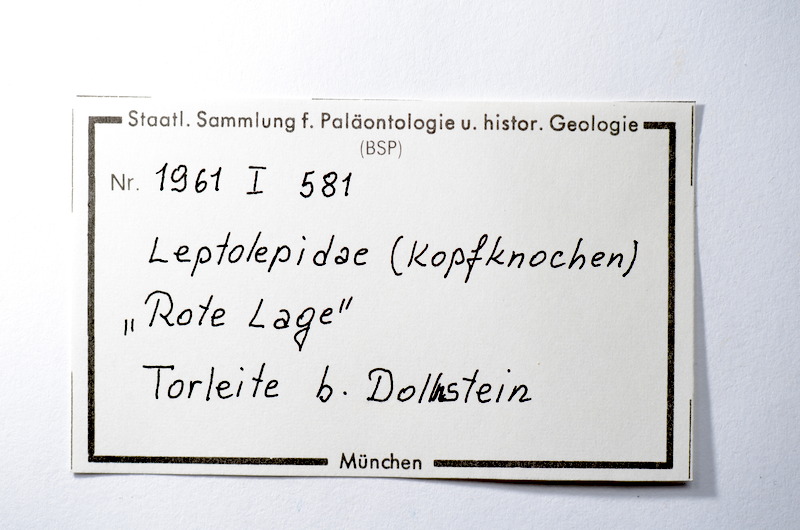 Staatl. Sammlung f. Paläontologie u. histor. Geologie
(BSP)
Nr. 1961 I 581
Leptolepidae (Kopfknochen)
„Rote Lage"
Torleite b. Dollnstein
München